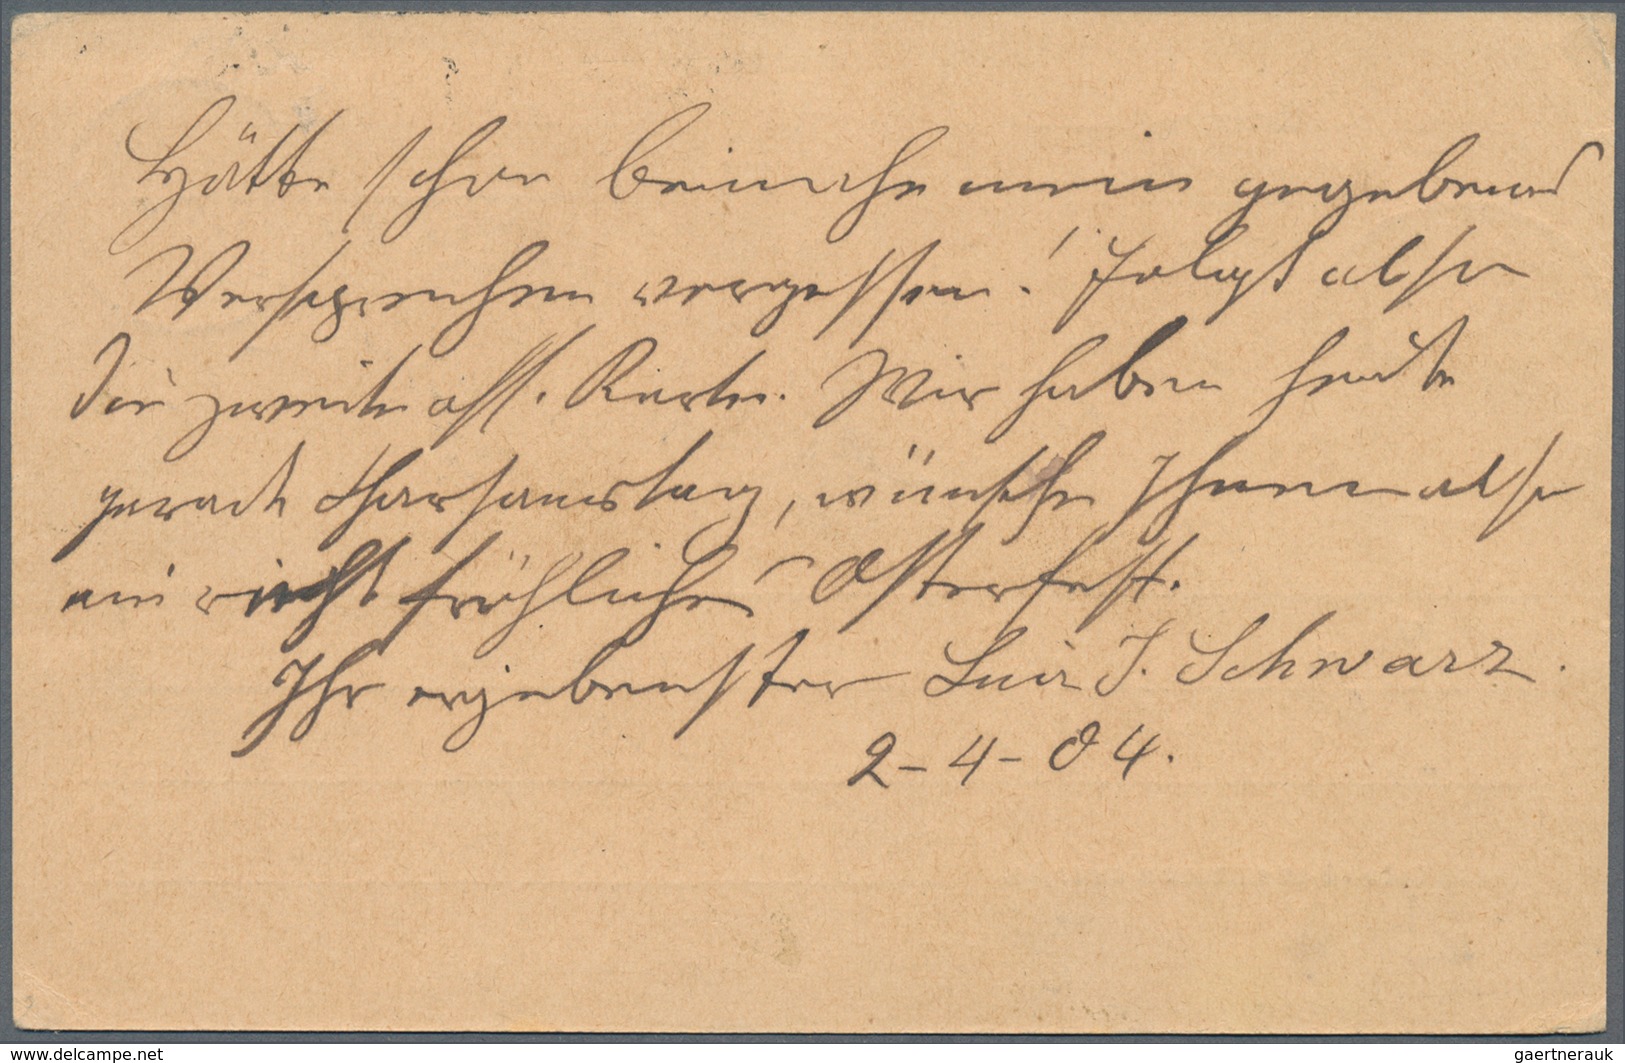 Hätte schon beinahe mein gegebenes
Versprechen vergessen! Folgt also
die zweite off. Karte. Wir haben heute
gerade Charsamstag, wünsche Ihnen also
ein recht fröhliches Osterfest.
Ihr ergebenster J. Schwarz.
2-4-04.
www.delcampe.net
gaertnerauk